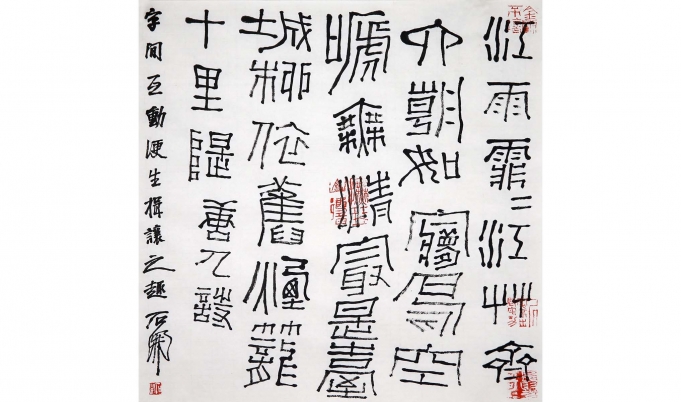 江雨霏〻江艸齊
六朝如㝱鳥空
嗁無情最是臺
城柳依舊煙籠
十里隄 唐人詩
字間互動便生揖讓之趣 石開